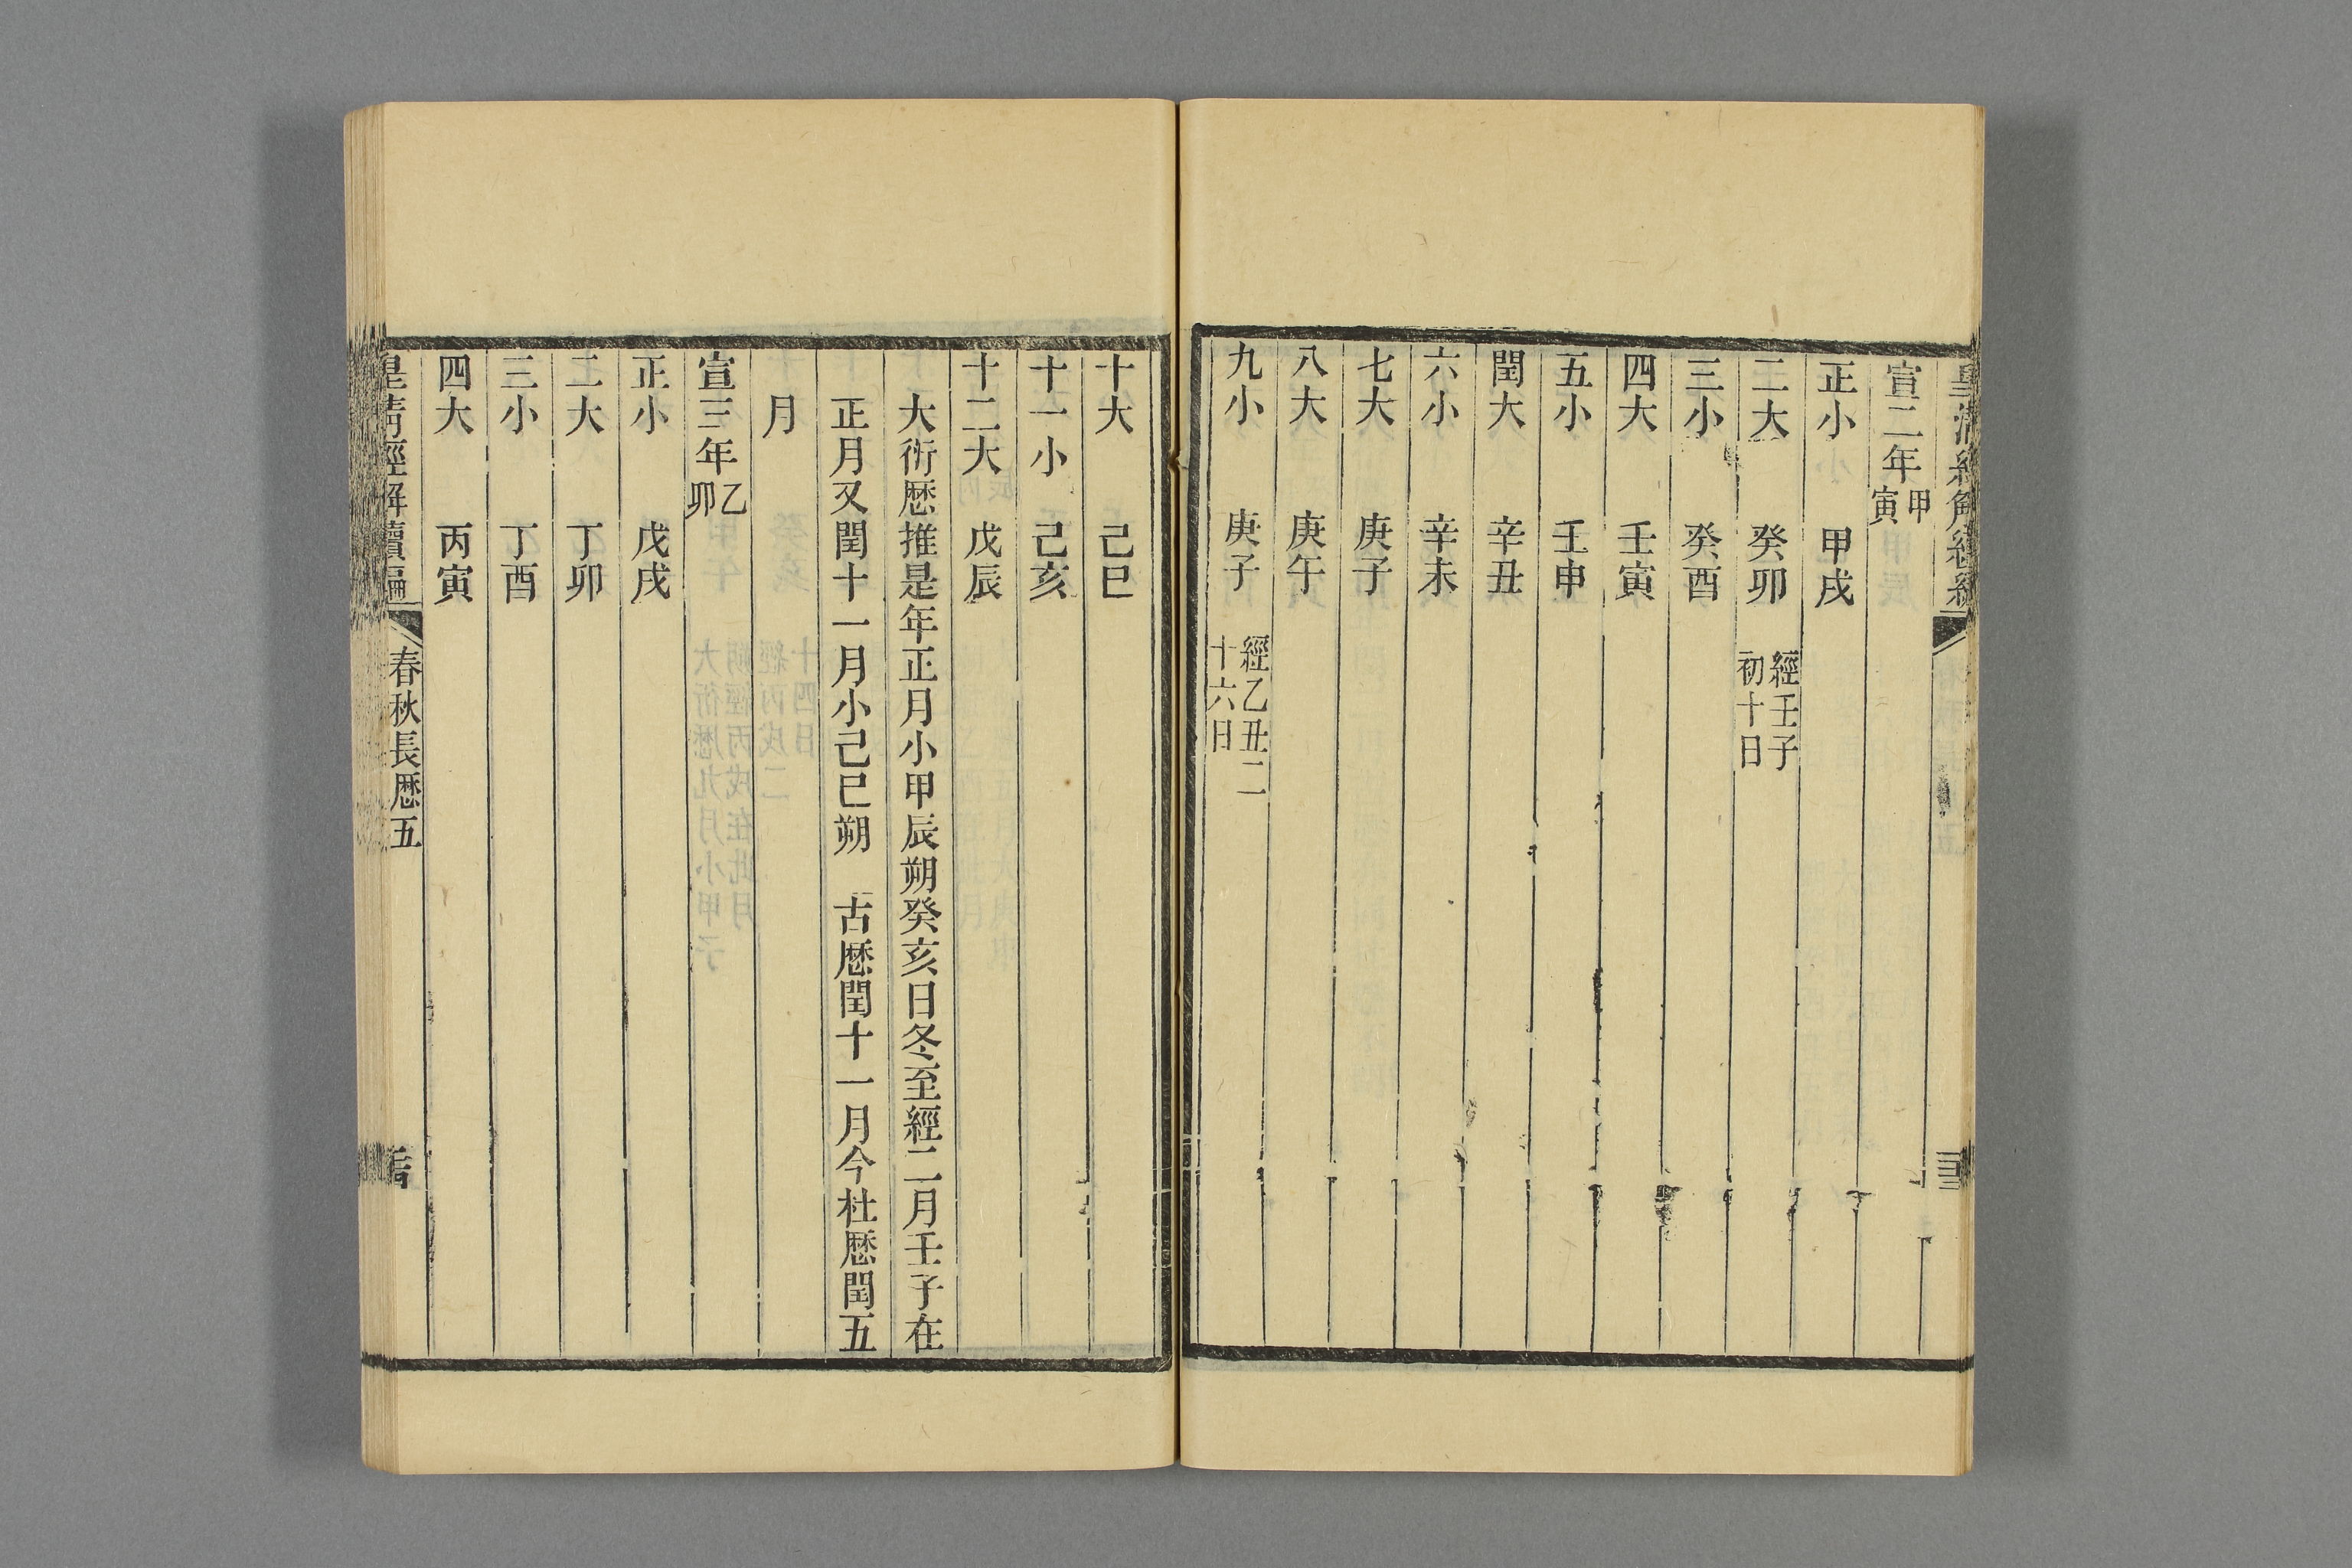 宣二年甲寅
正小　甲戌
二大　癸卯　經壬子初十日
三小　癸酉
四大　壬寅
五小　壬申
閏大　辛丑
六小　辛未
七大　庚子
八大　庚午
九小　庚子　經乙丑二十六日
十大　己巳
十一小　己亥
十二大　戊辰
大衍厯推是年正月小甲辰朔癸亥日冬至經二月壬子在
正月又閏十一月小己巳朔　古厯閏十一月今杜厯閏五
月
宣三年乙卯
正小　戊戌
二大　丁卯
三小　丁酉
四大　丙寅
皇清經解續編　春秋長厯五